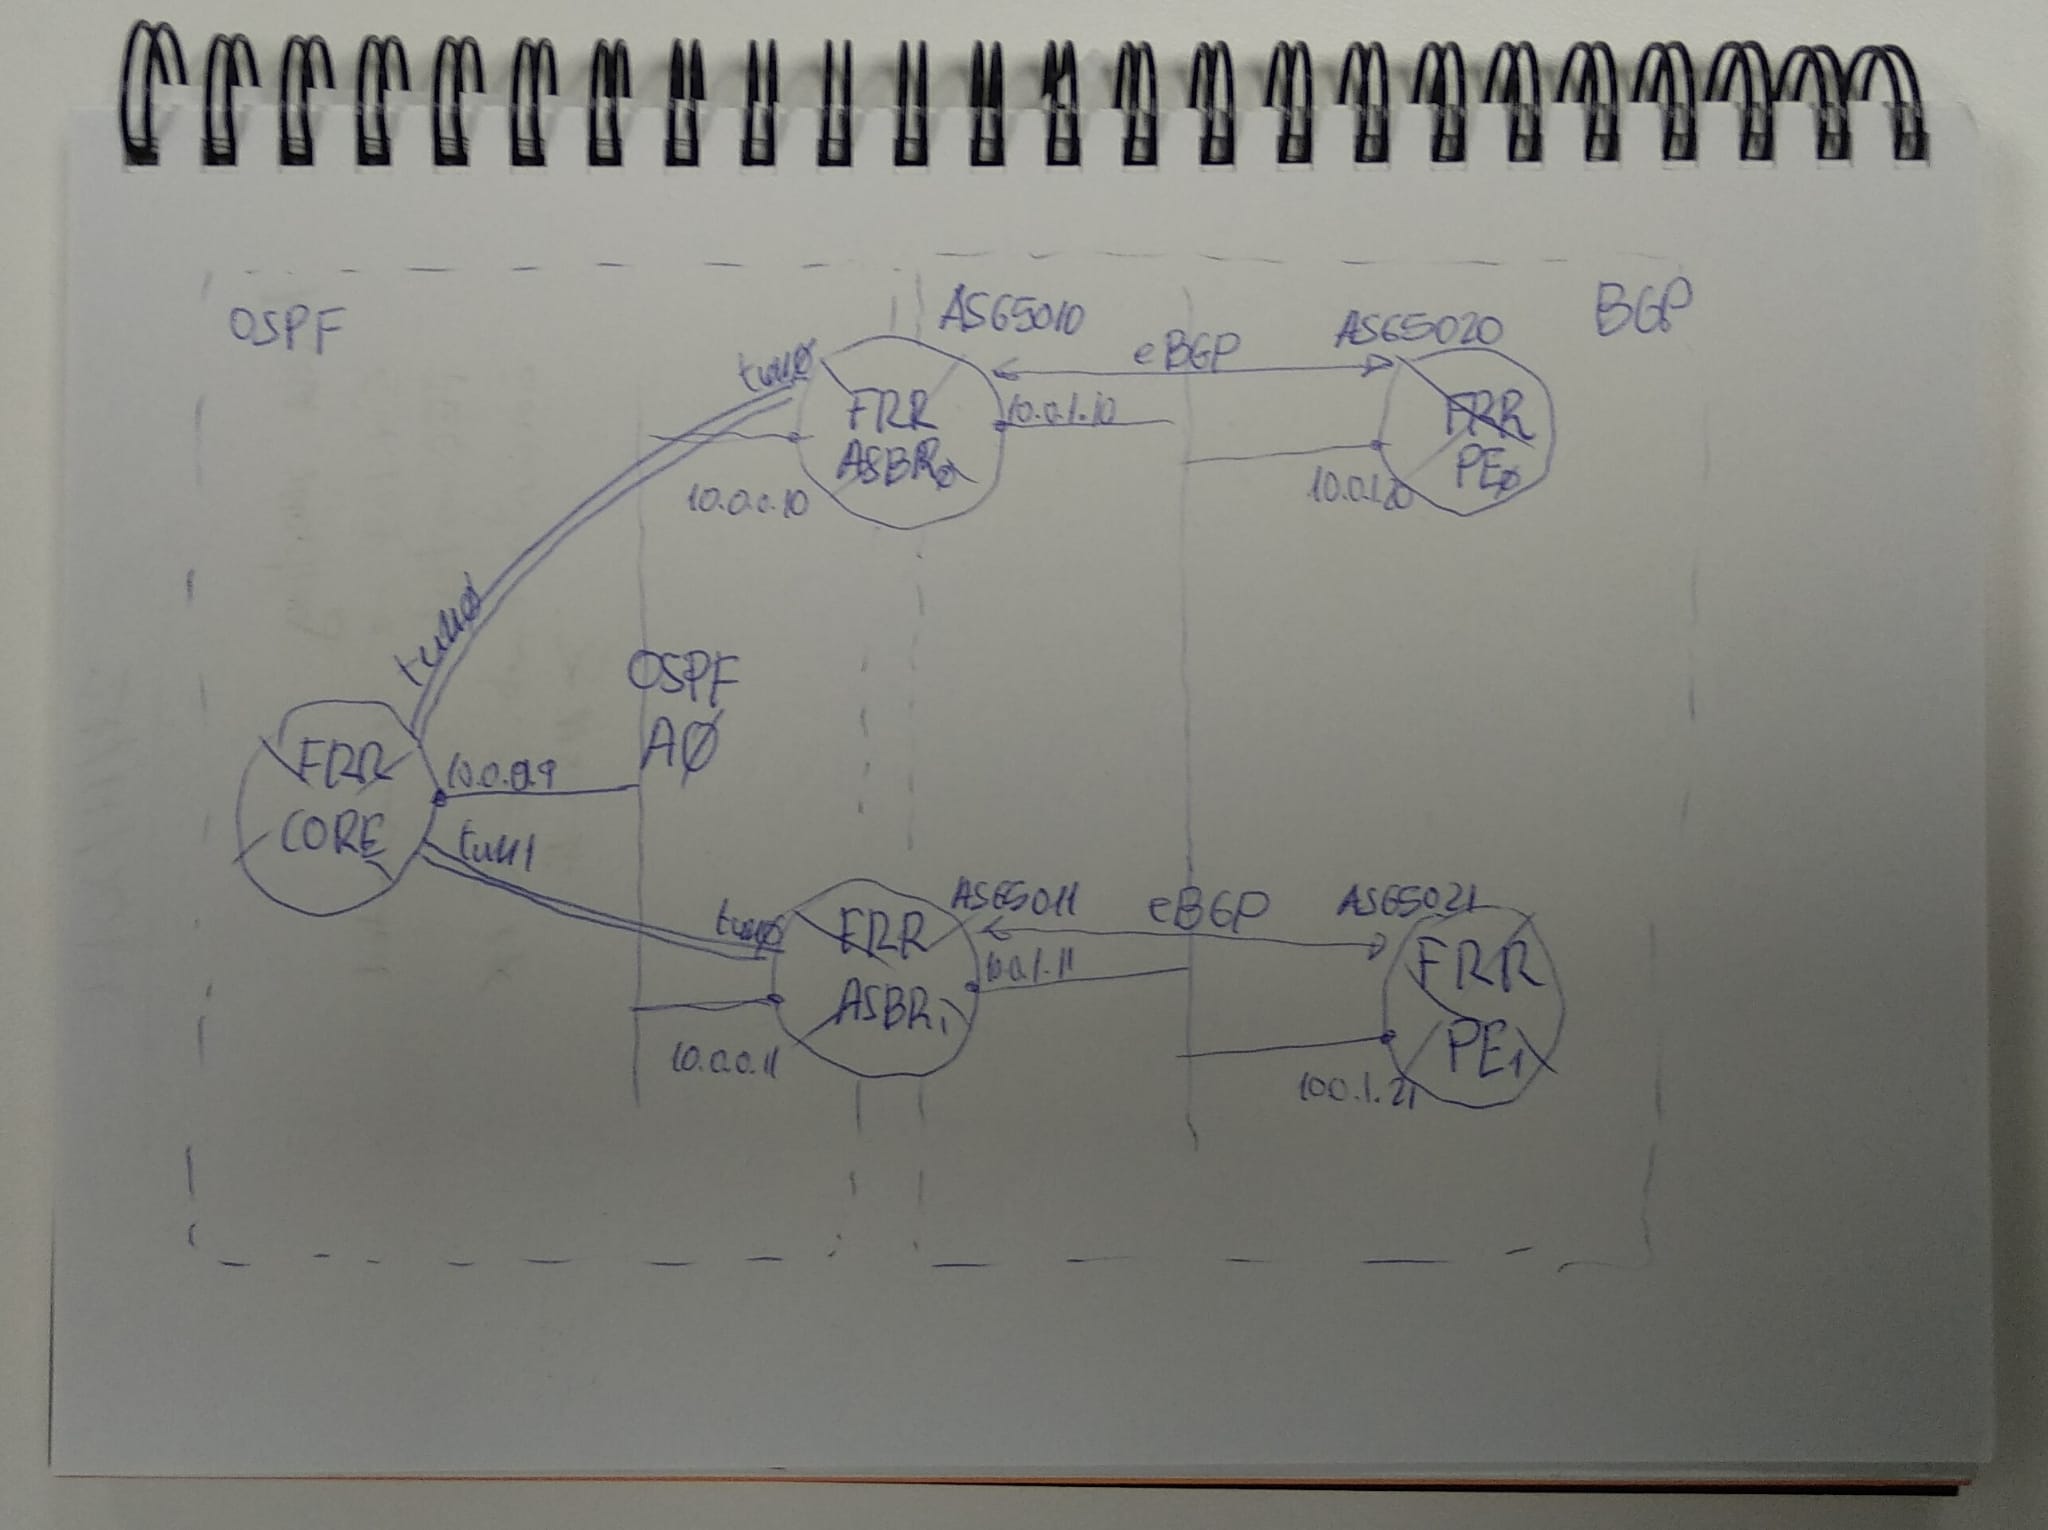 OSPF
BGP
AS65010
AS65020
eBGP
tun0
FRR
ASBR0
10.0.1.10
10.0.0.10
FRR
PE0
10.0.1.20
tun0
OSPF
A0
FRR
CORE
10.0.0.9
tun1
tun0
FRR
ASBR1
AS65011
eBGP
AS65021
10.0.1.11
10.0.0.11
FRR
PE1
10.0.1.21